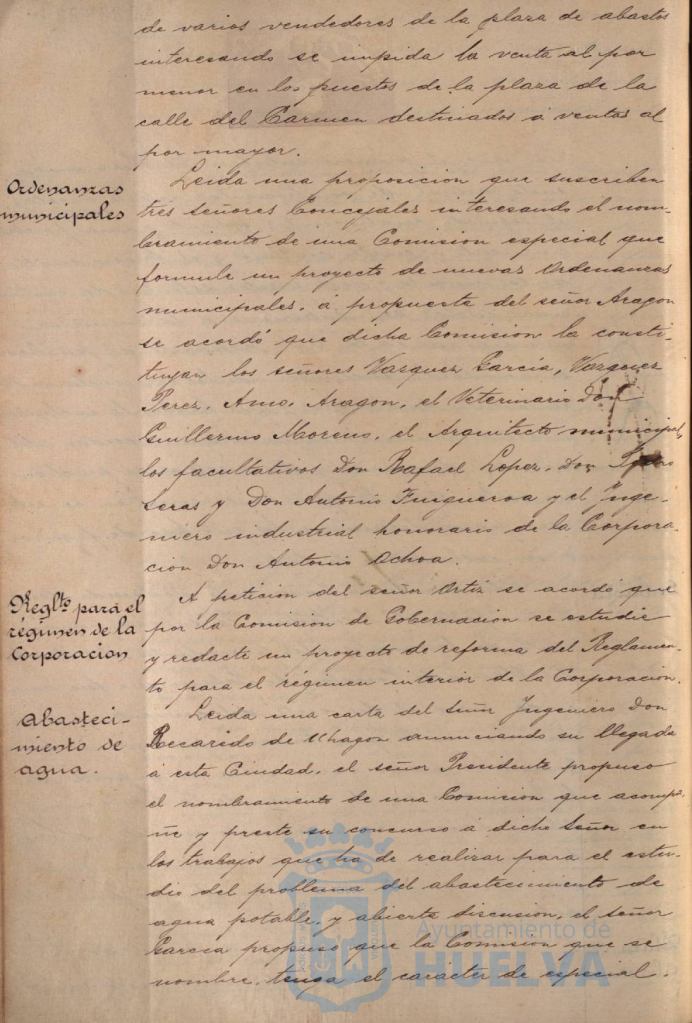 de varios vendedores de la plaza de abastos
interesando se impida la venta al por
menor en los puestos de la plaza de la
calle del Carmen destinados á ventas al
por mayor.
Ordenanzas
municipales
Leida una proposicion que suscriben
tres señores Concejales interesando el nom-
bramiento de una Comision especial que
formule un proyecto de nuevas Ordenanzas
municipales, á propuesta del señor Aragon
se acordó que dicha Comision la consti-
tuyan los señores Vazquez Garcia, Vazquez
Perez, Amo, Aragon, el Veterinario Don
Guillermo Moreno, el Arquitecto municipal,
los facultativos Don Rafael Lopez, Don
Seras y Don Antonio Fuigueroa y el Inge-
niero industrial honorario de la Corpora-
cion Don Antonio Ochoa.
Reglto para el
régimen de la
Corporacion
A peticion del señor Ortiz se acordó que
por la Comision de Gobernacion se estudie
y redacte un proyecto de reforma del Reglamen-
to para el régimen interior de la Corporacion.
Abasteci-
miento de
agua.
Leida una carta del Señor Ingeniero Don
Recaredo de Uhagon anunciando su llegada
á esta Ciudad, el señor Presidente propuso
el nombramiento de una Comision que acompa-
ñe y preste su concurso á dicho Señor en
los trabajos que ha de realizar para el estu-
dio del problema del abastecimiento de
agua potable, y abierta discusion, el señor
Garcia propuso que la Comision que se
nombre, tenga el caracter de especial.
Ayuntamiento de
HUELVA